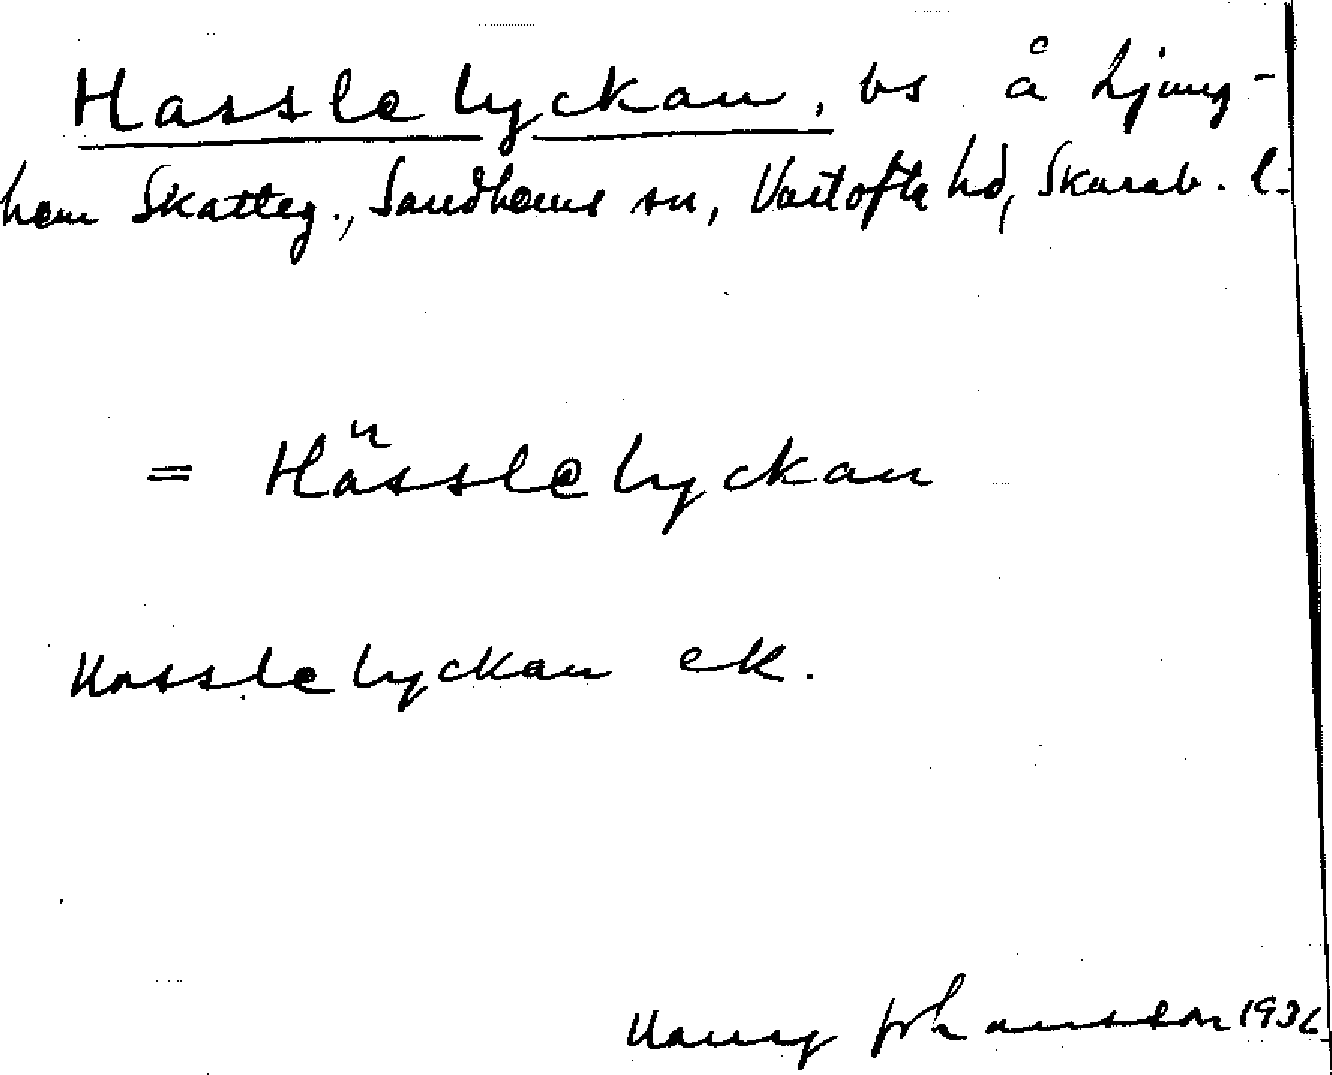 Hasslelyckan, bs å Ljung-
hem Skatteg., Sandhems sn, Vartofta hd, Skarab. l.
= Hässlelyckan
Hasslelyckan ek.
Johansson